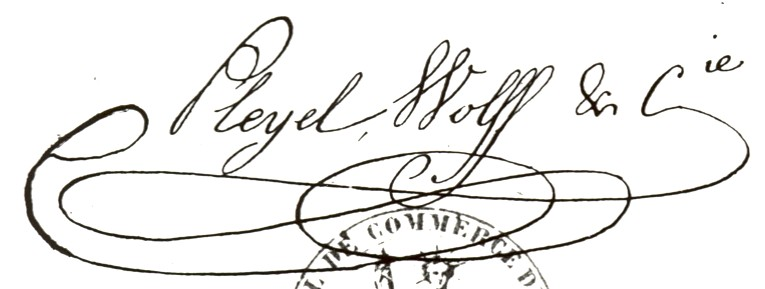 Pleyel, Wolff & Cie
L DE COMMERCE D